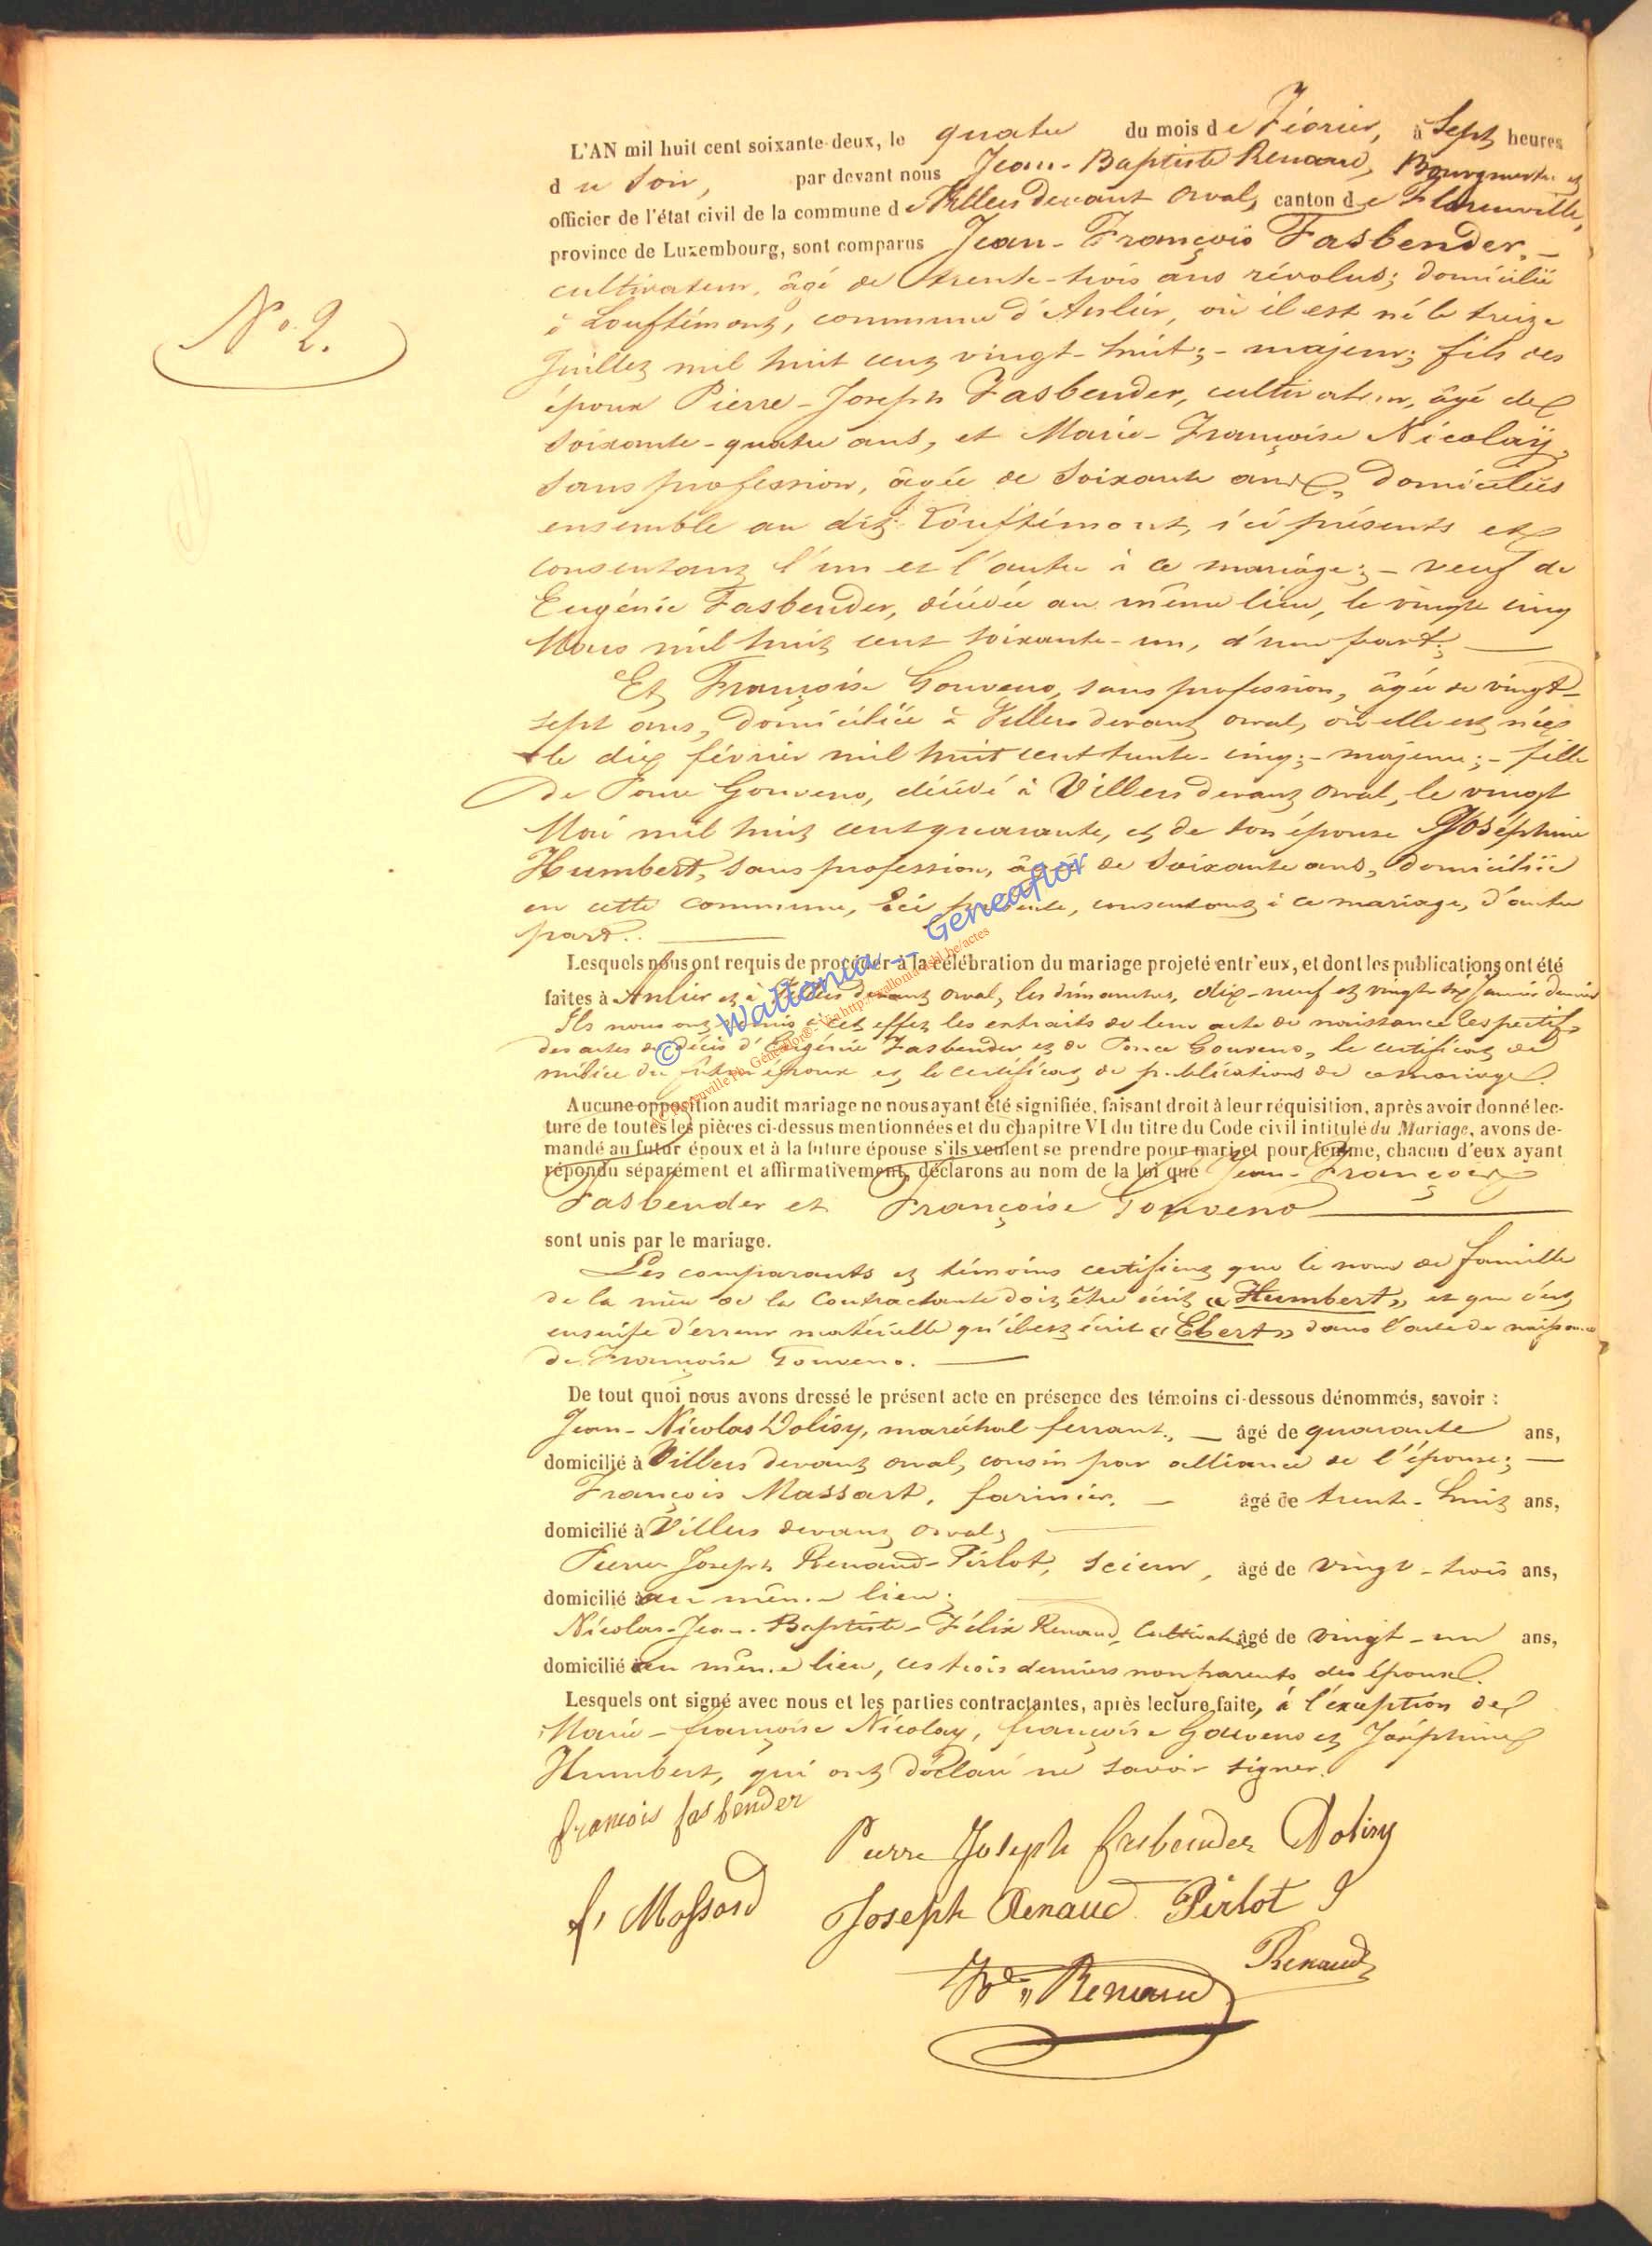 L'AN mil huit cent soixante-deux, le quatre du mois de Février, à Sept heures
du Soir, par devant nous Jean-Baptiste Renaud, Bourgmestre et
officier de l'état civil de la commune de Villers devant Orval, canton de Florenville,
province de Luxembourg, sont comparus Jean-François Fasbender,
cultivateur, âgé de trente-trois ans révolus; domicilié
à Louftémont, commune d'Anlier, où il est né le treize
Juillet mil huit cent vingt-huit; - majeur; fils des
époux Pierre-Joseph Fasbender, cultivateur, âgé de
soixante-quatre ans, et Marie-Françoise Nicolaÿ,
sans profession, âgée de soixante ans, domiciliés
ensemble au dit Louftémont, ici présents et
consentant l'un et l'autre à ce mariage; - veuf de
Eugénie Fasbender, décédée au même lieu, le vingt cinq
Mars mil huit cent soixante-un, d'une part;
Et Françoise Gouveno, sans profession, âgée de vingt-
sept ans, domiciliée à Villers devant Orval, où elle est née
le dix février mil huit cent trente-cinq; - majeure; - fille
de Ponce Gouveno, décédé à Villers devant Orval, le vingt
Mai mil huit cent quarante, et de son épouse Joséphine
Humbert, sans profession, âgée de soixante ans, domiciliée
en cette commune, ici présente, consentant à ce mariage, d'autre
part.
Lesquels nous ont requis de procéder à la célébration du mariage projeté entr'eux, et dont les publications ont été
faites à Anlier et à Villers devant Orval, les dimanches, dix-neuf et vingt six Janvier dernier
Ils nous ont remis à cet effet les extraits de leur acte de naissance respectif,
des actes de décès d'Eugénie Fasbender et de Ponce Gouveno, le certificat de
milice du futur époux et le certificat de publications de ce mariage.
Aucune opposition audit mariage ne nous ayant été signifiée, faisant droit à leur réquisition, après avoir donné lec-
ture de toutes les pièces ci-dessus mentionnées et du chapitre VI du titre du Code civil intitulé du Mariage, avons de-
mandé au futur époux et à la future épouse s'ils veulent se prendre pour mari et pour femme, chacun d'eux ayant
répondu séparément et affirmativement, déclarons au nom de la loi que Jean-François
Fasbender et Françoise Gouveno
sont unis par le mariage.
Les comparants et témoins certifient que le nom de famille
de la mère de la Contractante doit être écrit « Humbert » et que c'est
ensuite d'erreur matérielle qu'il est écrit « Ebert » dans l'acte de naissance
de Françoise Gouveno.
De tout quoi nous avons dressé le présent acte en présence des témoins ci-dessous dénommés, savoir :
Jean-Nicolas Dolisy, maréchal ferrant, âgé de quarante ans,
domicilié à Villers devant Orval, cousin par alliance de l'épouse;
François Massart, farinier, âgé de trente-huit ans,
domicilié à Villers devant Orval;
Pierre Joseph Renaud-Pirlot, scieur, âgé de vingt-trois ans,
domicilié au même lieu;
Nicolas-Jean-Baptiste-Félix Renaud, Cultivateur âgé de vingt-un ans,
domicilié au même lieu, ces trois derniers non parents des époux.
Lesquels ont signé avec nous et les parties contractantes, après lecture faite, à l'exception de
Marie-françoise Nicolay, françoise Gouveno et Joséphine
Humbert, qui ont déclaré ne savoir signer.
francois fasbender
Pierre Joseph fasbender Dolisy
f, Massard Joseph Renaud Pirlot
Renaud
Renaud
N° 2.
© Wallonia -- Geneaflor